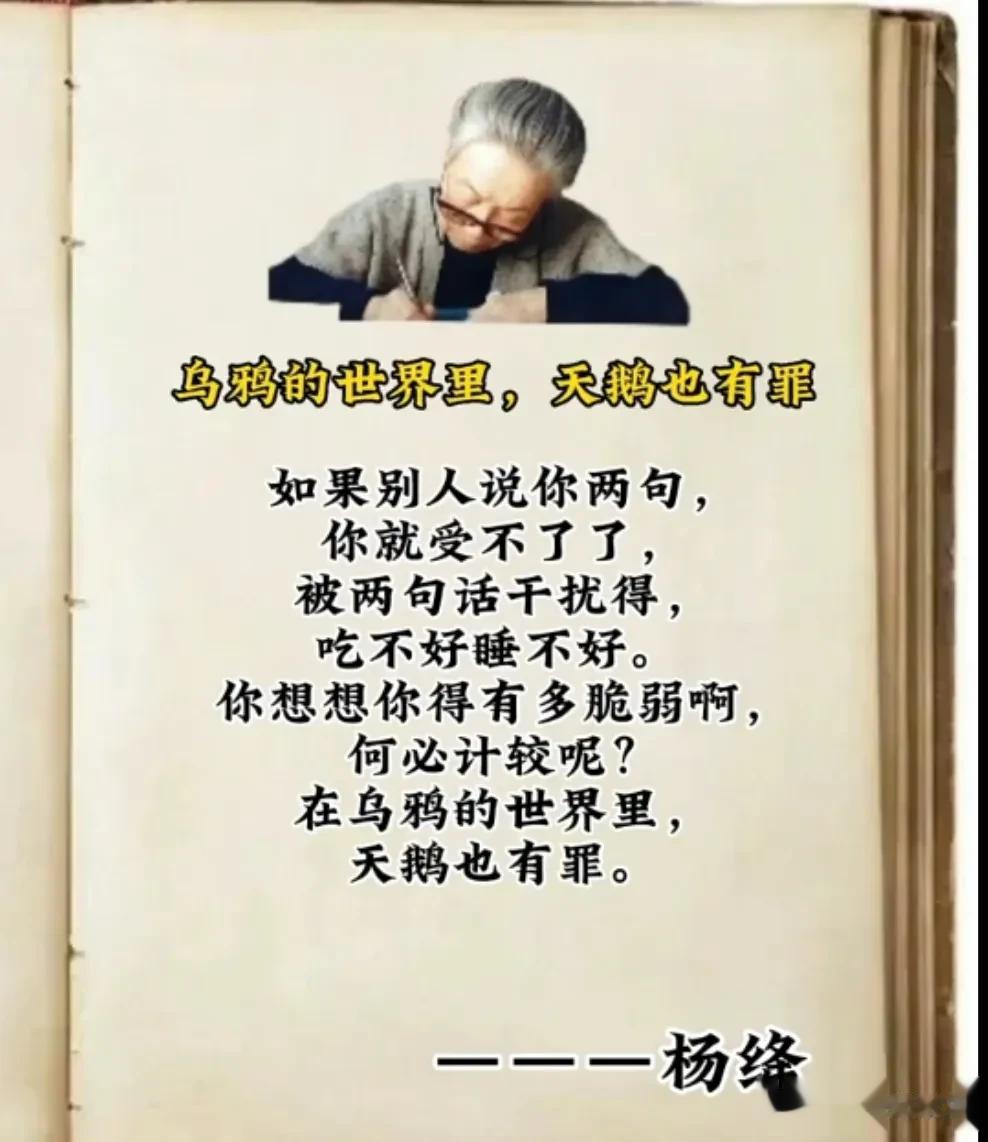 乌鸦的世界里，天鹅也有罪
如果别人说你两句，
你就受不了了，
被两句话干扰得，
吃不好睡不好。
你想想你得有多脆弱啊，
何必计较呢？
在乌鸦的世界里，
天鹅也有罪。
———杨绛